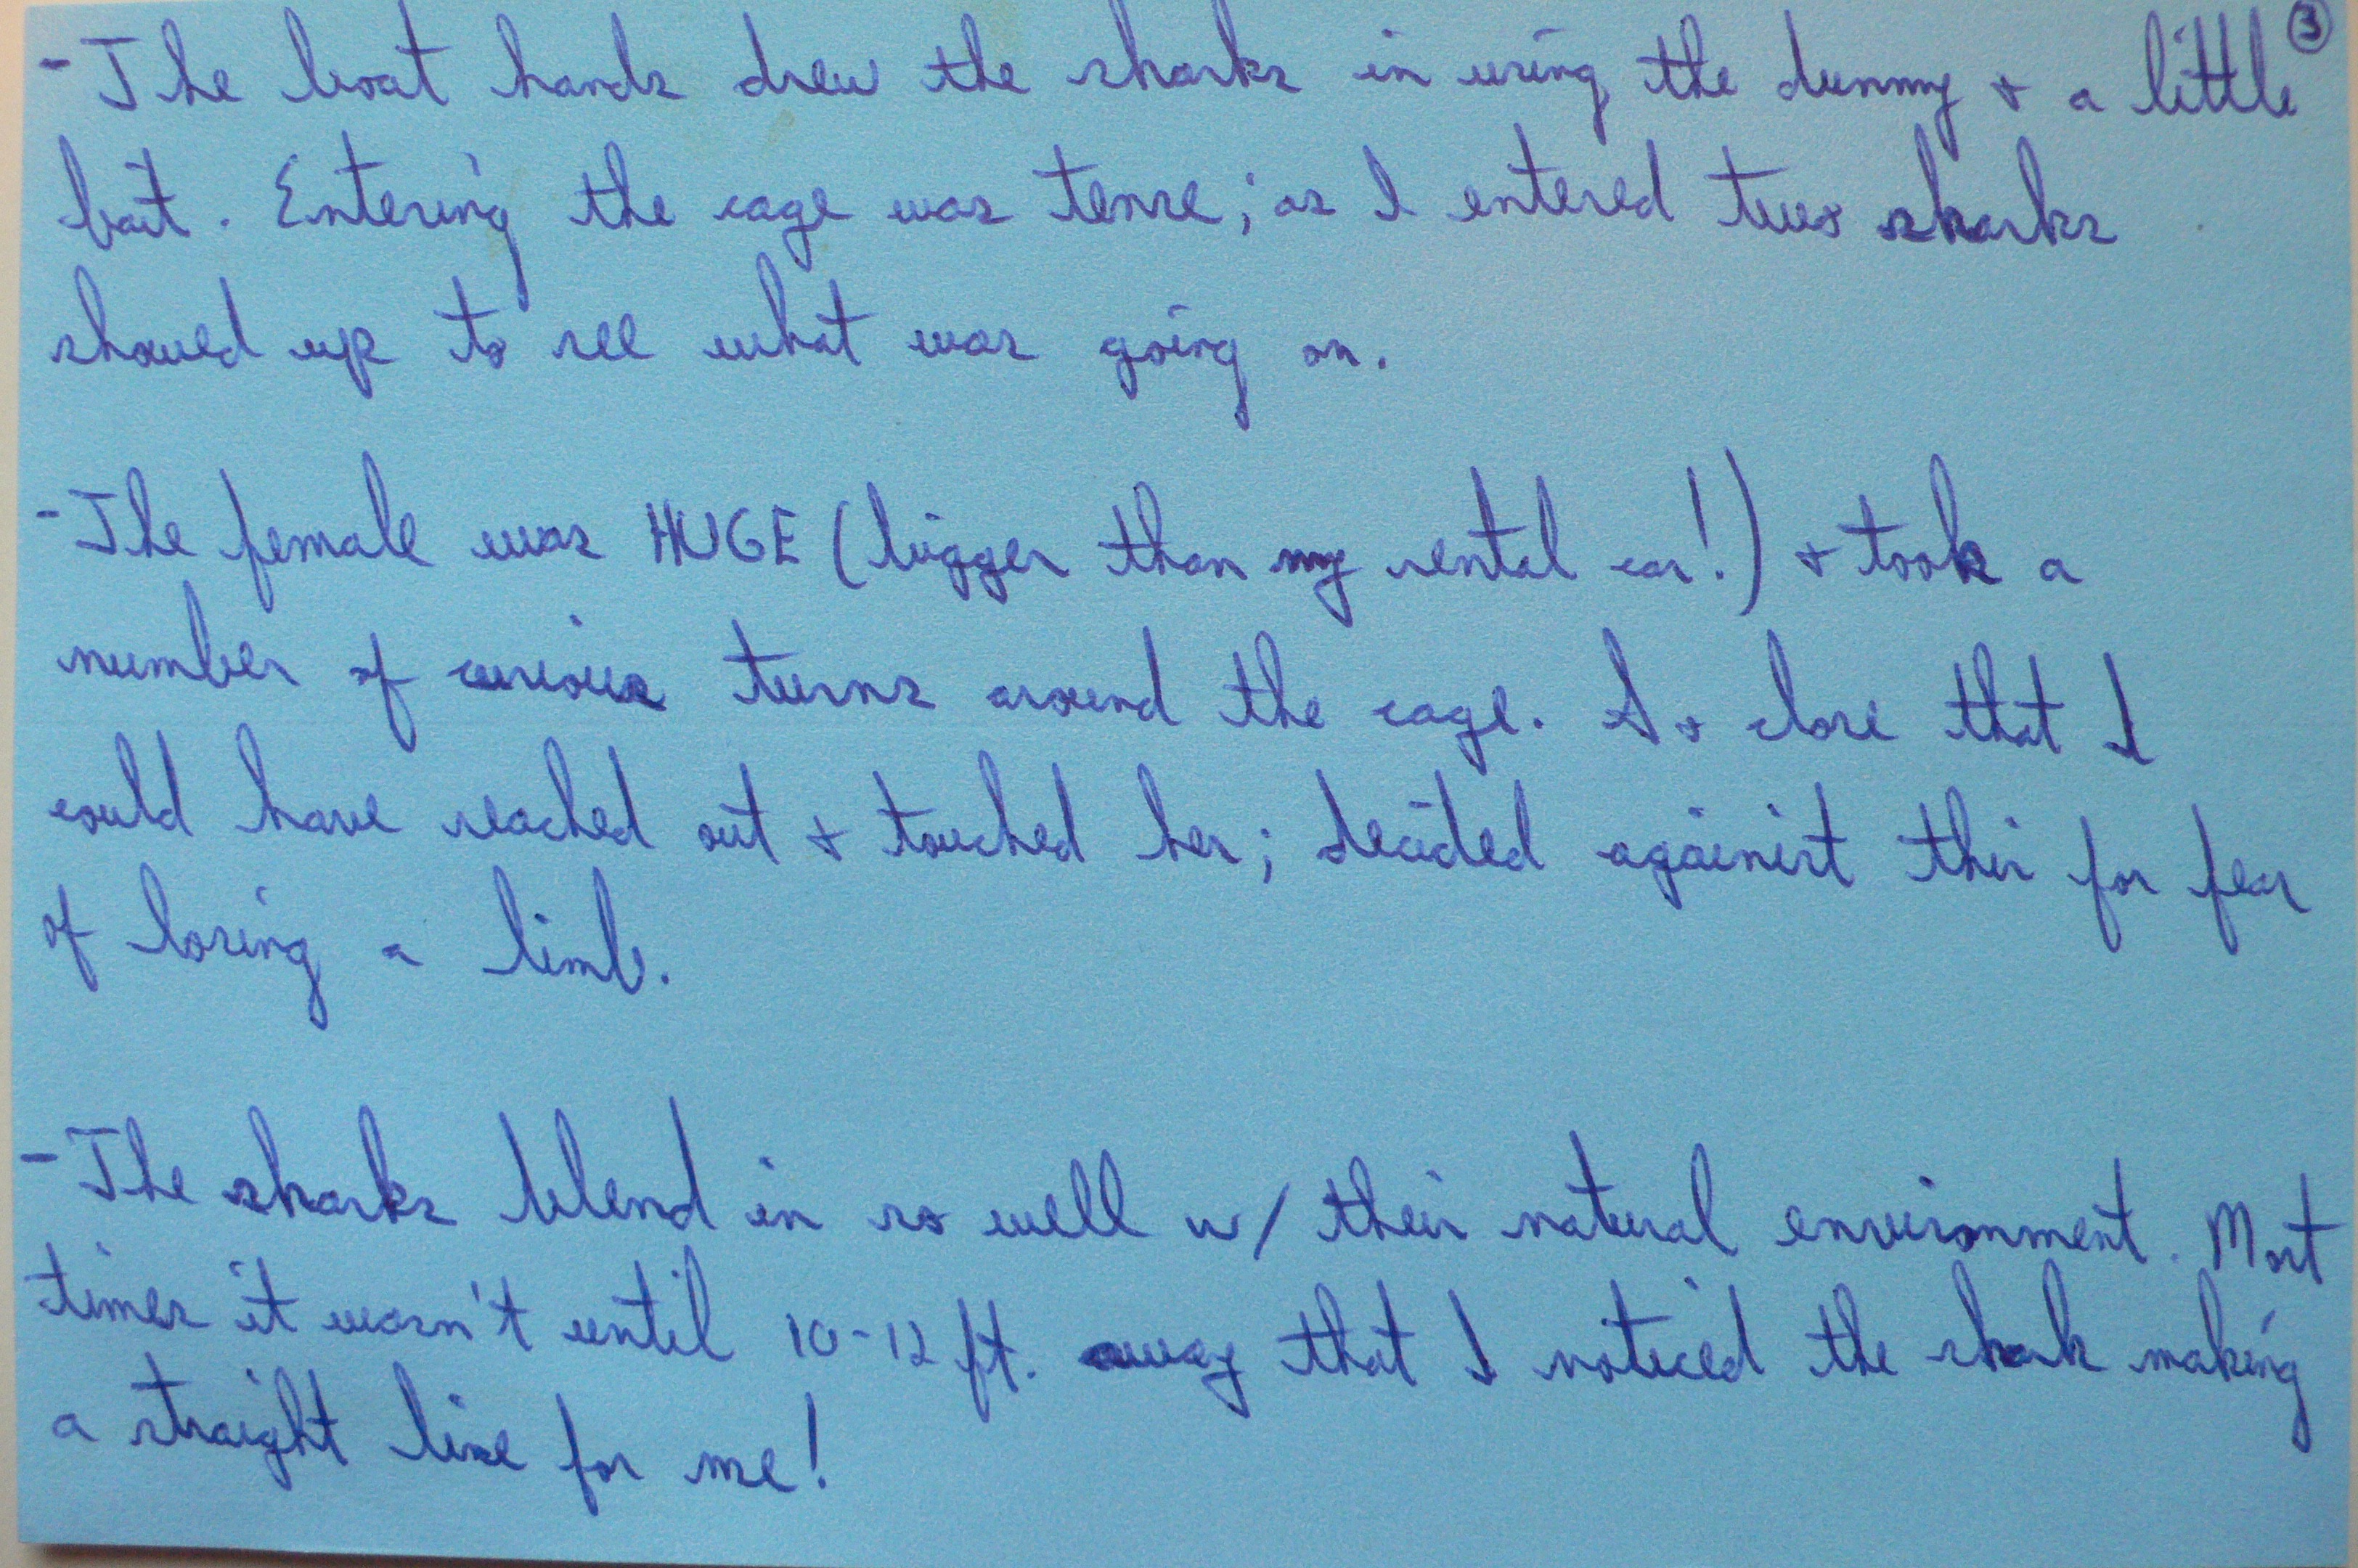 ③
- The boat hands drew the sharks in using the dummy & a little
bait. Entering the cage was tense; as I entered two sharks
showed up to see what was going on.
- The female was HUGE (bigger than my rental car!) & took a
number of curious turns around the cage. So close that I
could have reached out & touched her; decided against this for fear
of losing a limb.
- The sharks blend in so well w/ their natural environment. Most
times it wasn't until 10-12 ft. away that I noticed the shark making
a straight line for me!